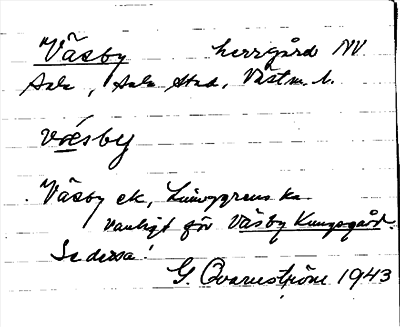 Väsby herrgård NV
Sala, Sala stad, Västm. l.
væsby
Väsby ek, Lindgrens ka.
vanligt för Väsby Kungsgård.
Se dessa!
G. Qvarnström 1943